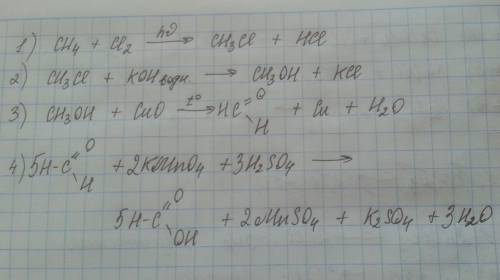 1) CH4 + Cl2 —hν→ CH3Cl + HCl
2) CH3Cl + KOH водн. → CH3OH + KCl
3) CH3OH + CuO —t°→ HC=O H + Cu + H2O
4) 5H-C=O H + 2KMnO4 + 3H2SO4 →
5H-C=O OH + 2MnSO4 + K2SO4 + 3H2O